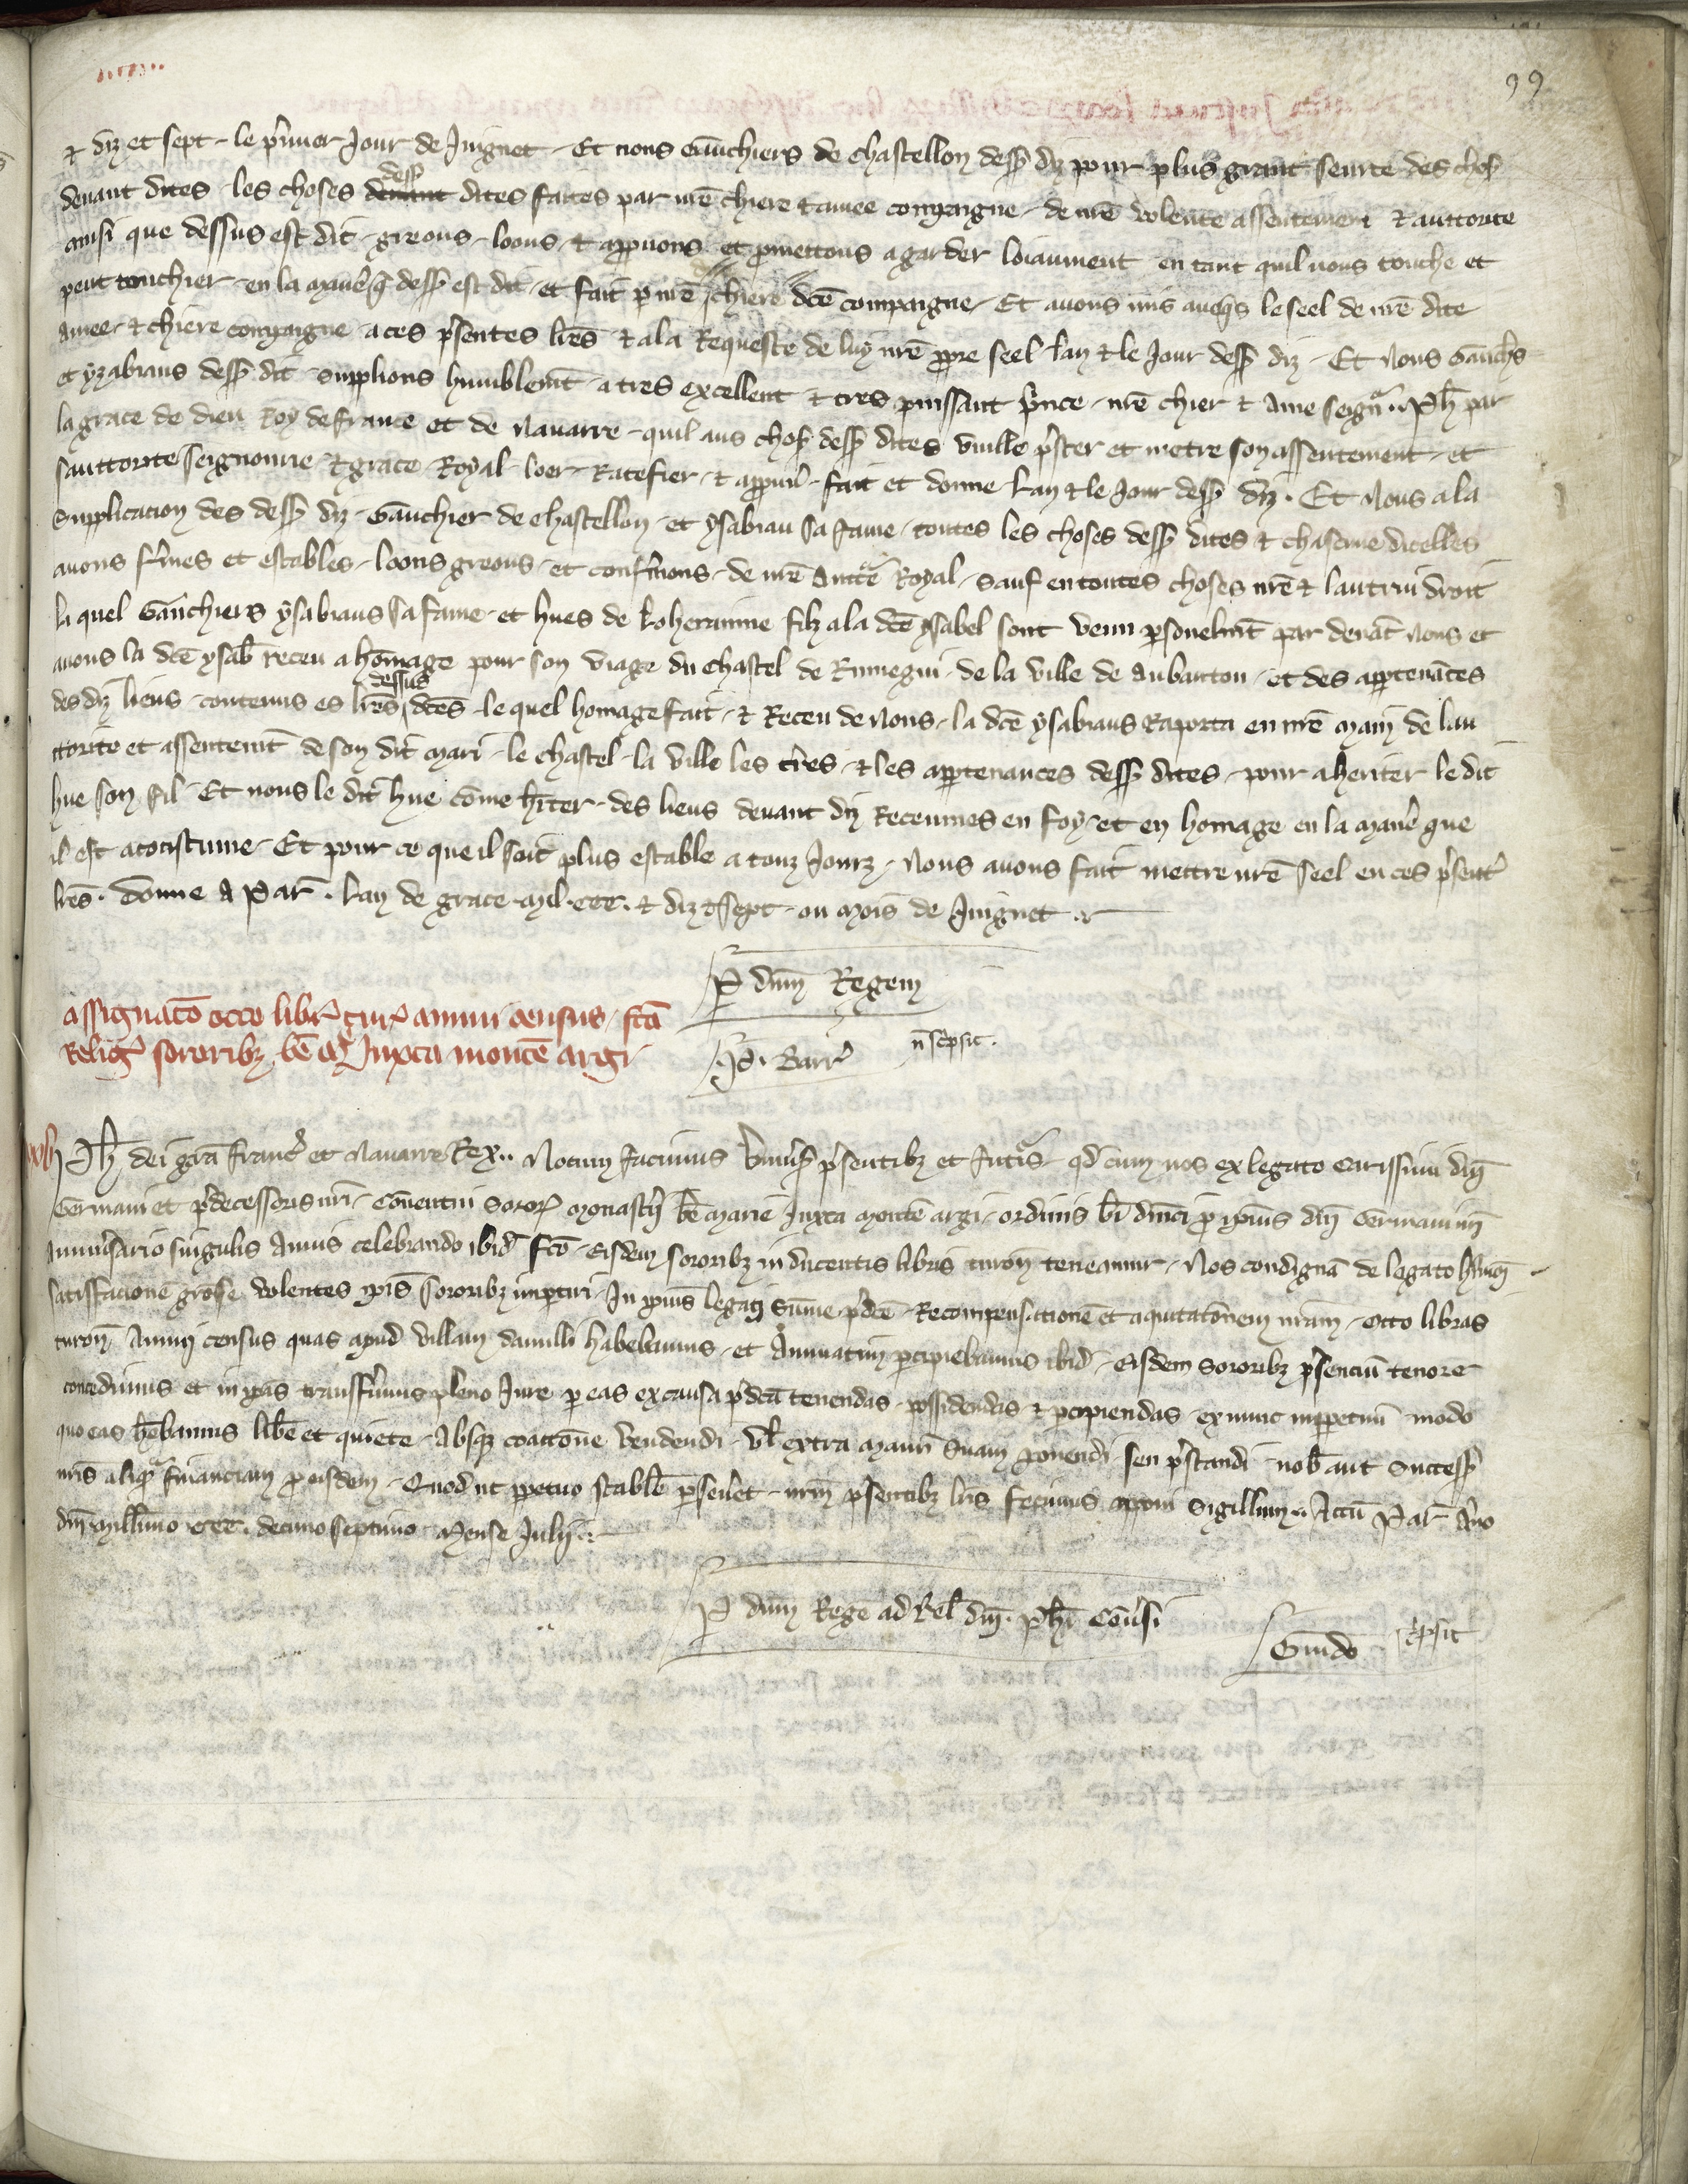 99
⁊ diz et sept - le p̃mier Jour de Juignet - Et nous Gauchiers de Chastellon dess̃ diz pour plus grant seurte des chos̃
deuant dites - les choses dess̃ dites faites par nr̃e chiere ⁊ amee compaigne - de nr̃e volente assentement ⁊ auttorite
ainsi que dessus est dit - greons - loons - ⁊ appuons et pmettons a garder loiaument en tant quil nous touche et
peut touchier - en la maner̃ q̃ dess̃ est dit - et fait p nr̃e chiere dc̃e compaigne - Et auons mis auecq̃s le seel de nr̃e dite
amee - ⁊ chiere compaigne a ces p̃sentes lr̃es ⁊ a la Requeste de luy nr̃e ppre seel - lan ⁊ le Jour dess̃ diz - Et Nous Gauch̃s
et yzabiaus dess̃ dit - supplions humblemt̃ - a tres excellent ⁊ tres puissant p̃nce - nr̃e chier ⁊ Ame seign̄r .. Ph̃ par
la grace de dieu Roy de france et de Nauarre - quil aus chos̃ dess̃ dites vuille p̃ster et metre son assentement - et
sauttorite seignourie ⁊ grace - Royal - loer - Ratefier - ⁊ appuũ - fait et donne - Lan ⁊ le Jour dess̃ diz . Et Nous a la
supplication des dess̃ diz - Gauchier de Chastellon - et ysabiau sa fame - toutes les choses dess̃ dites ⁊ chascune dicelles
auons f̃mes et estables - loons greons - et conf̃mons - de nr̃e Auctt̃e Royal - sauf en toutes choses nr̃e ⁊ lautrui droit
li quel Gauchiers ysabiaus sa fame - et hues de Loherainne filz a la dc̃e ysabel sont venu psonelmt̃ par deuãt Nous et
auons la dc̃e ysab̃ receu a hõmage pour son viage du Chastel de Rumegni - de la ville de Aubanton - et des apptenãces
des diz lieus - contenus es lr̃es dessus dc̃es - le quel homage fait - ⁊ Receu de Nous - la dc̃e ysabiaus Raporta en nr̃e main de lau
ttorite et assentemt̃ de son dit mari - le chastel - la ville les tr̃es - ⁊ les apptenances dess̃ dites - pour aheriter le dit
hue son fil - Et nous le dit hue cõme hr̃iter - des lieus deuant diz Receumes en foy - et en homage en la maner̃ que
il est acoustume - Et pour ce que il soit plus estable a touz Jourz - Nous auons fait mettre nr̃e seel en ces p̃sent̃
lr̃es . Donne A Par̃ . Lan de grace Mil . ccc . ⁊ diz ⁊ sept - ou Mois de Juignet
P dnm̃ Regem
Jo . Barr̃ nsc̃psit .
assignatõ octo libr̃ tur̃ annui census - fc̃a
Relig̃ sororibz bẽ mr̃ Juxta montẽ argi
Ph̃ dei gr̃a franc̃ et Nauarre Rex .. Notum facimus vniũs̃ p̃sentibz et futĩs - qd̃ cum nos ex legato carissimi dñi
Germani et p̃decessoris nr̃i - Conuentui soror̃ monastr̃ij bẽ marie Juxta montẽ argi - ordinis bĩ dñici p ipius dñi Germani nr̃i
anniũsario singulis annis celebrando ibid̃ fc̃o - eisdem sororibz in ducentis libris turoñ teneamur - Nos condignã de legato hm̃oi
satisfationẽ grõse volentes ipĩs sororibz impartiri - In ipĩus legati sũme p̃dc̃e - Recompensationẽ et aquitatõnem nr̃am - Octo libras
turoñ annui census quas apud villam Damilli habebamus - et annuatim pcipiebamus ibid̃ - eisdem sororibz p̃senciũ tenore
concedimus et in ip̃as transfr̃imus pleno Jure p eas ex causa p̃dc̃a tenendas - possidendas ⁊ pcipiendas ex nunc imppetuũ modo
quo eas hẽbamus libẽ et quiete - absqz coactõne vendendi - vl̃ extra manũ suam ponendi seu p̃standi nob̃ aut success̃
nr̃is aliqã financiam p eisdem - Quod ut ppetuo stabil̃ pseũet - nr̃m p̃sentibz lr̃is fecimus apponi sigillum .. Actũ Par̃ Añno
dñi millĩmo ccc . decimo septimo - Mense Julij
P dnm̃ Regẽ ad Rel̃ dñi . Phĩ Conũsi
Guido sc̃psit